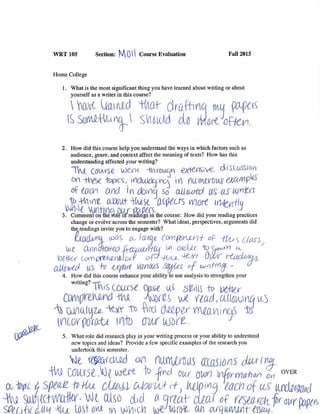 WRT 105 Section: M011 Course Evaluation Fall 2015
Home College
1. What is the most significant thing you have learned about writing or about
yourself as a writer in this course?
I have learned that drafting my papers
is something I should do more often.
2. How did this course help you understand the ways in which factors such as
audience, genre, and context affect the meaning of texts? How has this
understanding affected your writing?
The course went through extensive discussion
on these topics, including in numerous examples
of each and in doing so allowed us as writers
to think about these aspects more intently
while writing our papers.
3. Comment on the role of readings in the course: How did your reading practices
change or evolve across the semester? What ideas, perspectives, arguments did
the readings invite you to engage with?
Reading was a large component of this class,
we annotated frequently in order to gain a
better comprehension of the text. Our readings
allowed us to explore various styles of writing.
4. How did this course enhance your ability to use analysis to strengthen your
writing?
This course gave us skills to better
comprehend the works we read, allowing us
to analyze text to find deeper meanings to
incorporate into our work.
5. What role did research play in your writing process or your ability to understand
new topics and ideas? Provide a few specific examples of the research you
undertook this semester.
We researched on numerous occasions during
the course. We were to find our own information on OVER
a topic & speak to the class about it, helping each of us understand
the subject matter. We also did a great deal of research for our papers
specifically the last one in which we wrote an argument essay.